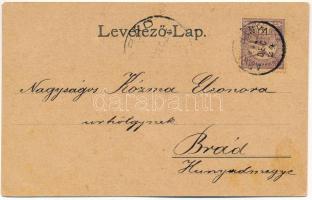 Levelező-Lap.
Nagyságos Kozma Eleonora
úrhölgynek
Brád
Hunyadmegye